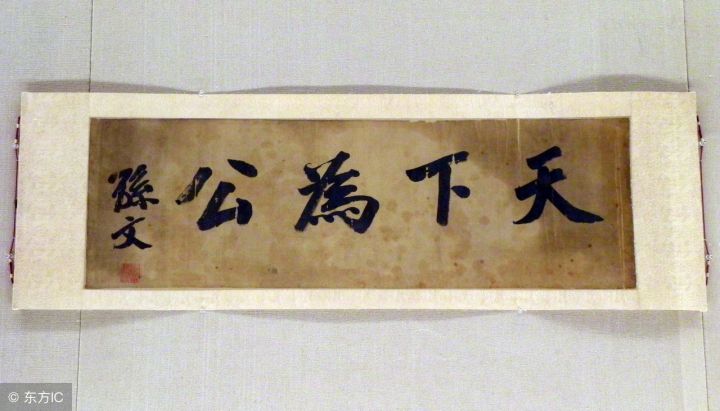 天下為公
孫文
© 东方IC